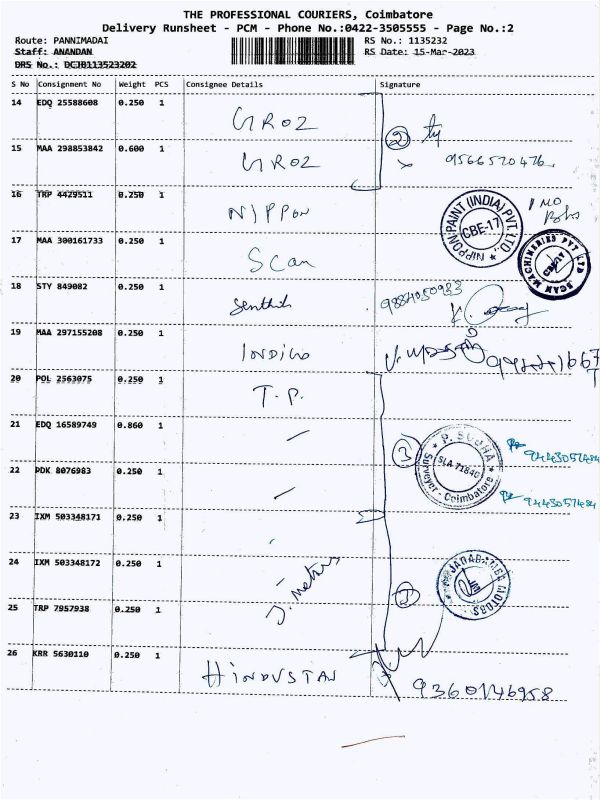 THE PROFESSIONAL COURIERS, Coimbatore
Delivery Runsheet - PCM - Phone No.:0422-3505555 - Page No.:2
Route: PANNIMADAI
RS No.: 1135232
Staff: ANANDAN
RS Date: 15-Mar-2023
DRS No.: DCJ0113523202
S No Consignment No Weight PCS Consignee Details Signature
14 EDQ 25588608 0.250 1 GROZ
15 MAA 298853842 0.600 1 GROZ
2
9566570476
16 TRP 4429511 0.250 1 NIPPON
NIPPON PAINT (INDIA) PVT. LTD.
CBE-17
17 MAA 300161733 0.250 1 Scan
SCAN MACHINERIES PVT LTD
18 STY 849082 0.250 1 Senthil
9884050933
19 MAA 297155208 0.250 1 INDIGO
20 POL 2563075 0.250 1 T.P.
21 EDQ 16589749 0.860 1
3
P. SUDHA
SLA 71840
Surveyor - Coimbatore
9443057484
22 PDK 8076983 0.250 1
9443057484
23 IXM 503348171 0.250 1
24 IXM 503348172 0.250 1
J. Motors
MOTORS
25 TRP 7957938 0.250 1
26 KRR 5630110 0.250 1 HINDUSTAN
9360146958